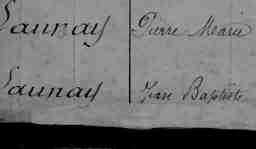 Launay Pierre Marie
Launay Jean Baptiste